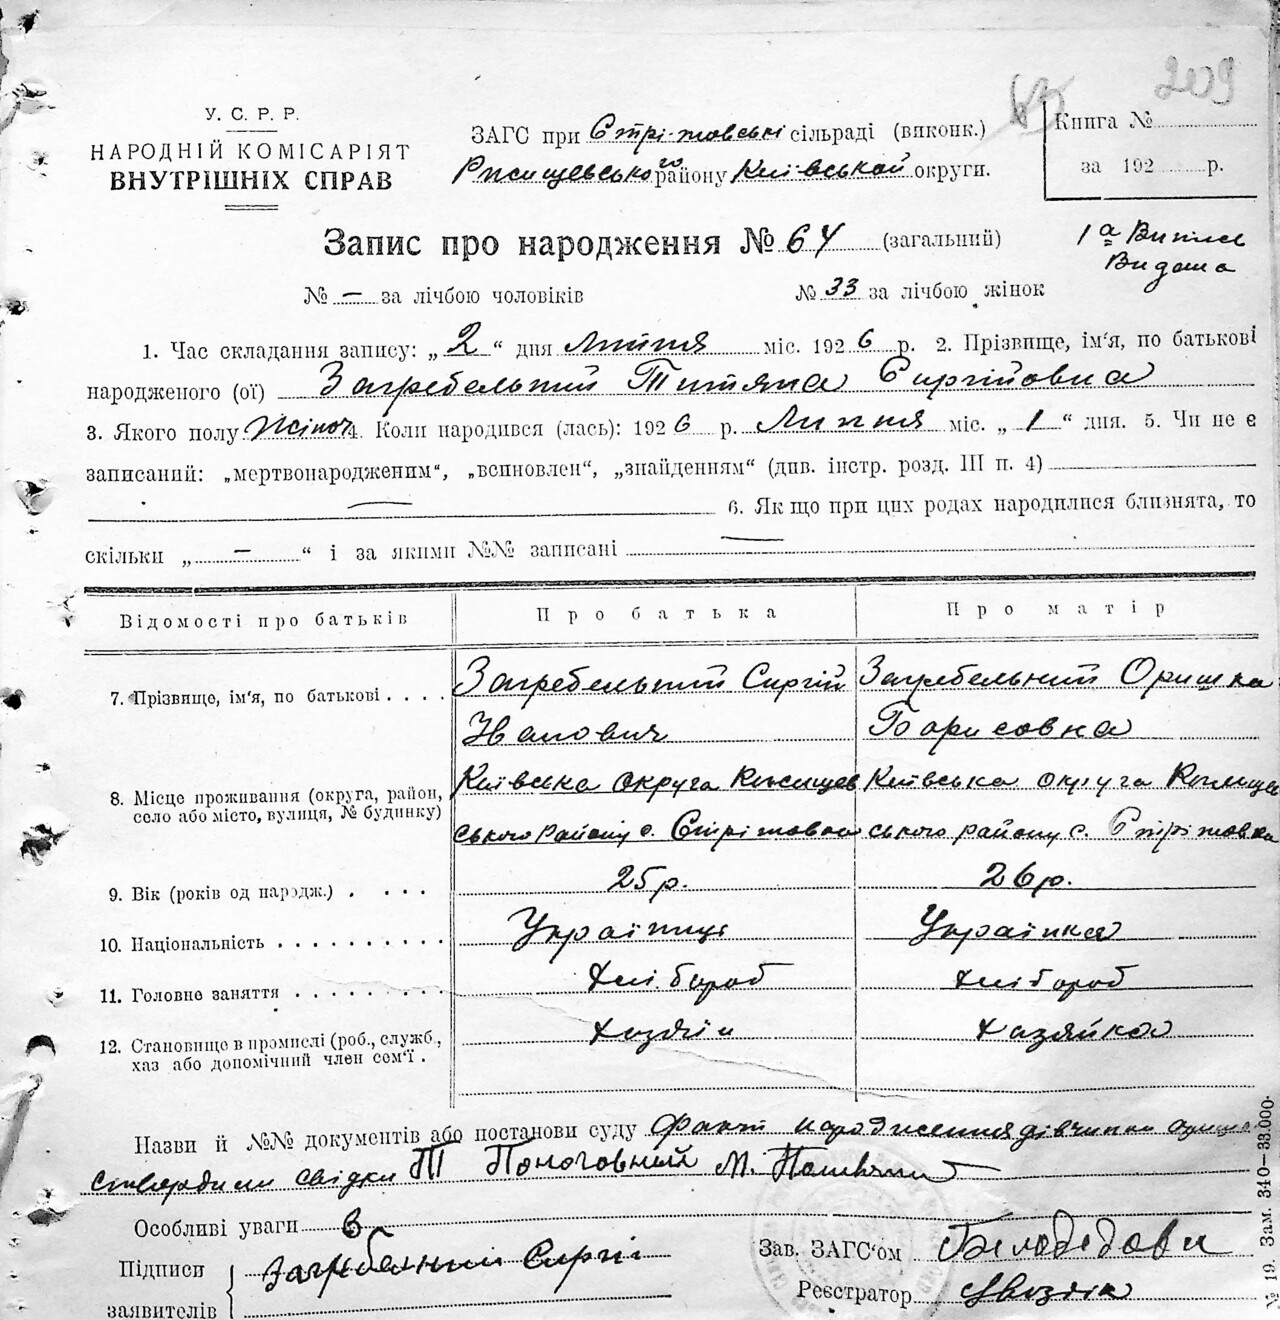 209
У. С. Р. Р.
НАРОДНІЙ КОМІСАРІЯТ
ВНУТРІШНІХ СПРАВ
ЗАГС при Стрітовські сільраді (виконк.)
Ржищевського району Київської округи.
Книга №
за 192 р.
Запис про народження № 64 (загальний)
1а Витпис
Видана
№ — за лічбою чоловіків № 33 за лічбою жінок
1. Час складання запису: „ 2 “ дня липня міс. 192 6 р. 2. Прізвище, ім'я, по батькові
народженого (ої) Загребельний Титяна Сиргійовна
3. Якого полу жіноч 4. Коли народився (лась): 192 6 р. Липня міс. „ 1 “ дня. 5. Чи не є
записаний: „мертвонародженим“, „всиновлен“, „знайденням“ (див. інстр. розд. III п. 4)
— 6. Як що при цих родах народилися близнята, то
скільки „ — “ і за якими №№ записані —
Відомості про батьків Про батька Про матір
7. Прізвище, ім'я, по батькові . . . . Загребельний Сиргій Загребельний Оришка
Іванович Борисовна
8. Місце проживання (округа, район, Київська округа Ржищев Київська округа Ржищев
село або місто, вулиця, № будинку) ського району с. Стрітовка ського району с. Стрітовка
9. Вік (років од народж.) . . . . 25 р. 26 р.
10. Національність . . . . . . . . . . Українць Українка
11. Головне заняття . . . . . . . . . Хлібороб Хлібороб
12. Становище в промислі (роб., служб., Хозяін Хазяйка
хаз або допомічний член сем'ї .
Назви й №№ документів або постанови суду Факт народження дівчинки
ствердили свідки Т Поноговний М.
Особливі уваги
Підписи
заявителів
Загребелний Сиргі
Зав. ЗАГС'ом Білодєдови
Реєстратор Гвоздік
№ 19. Зам. 340—33.000.